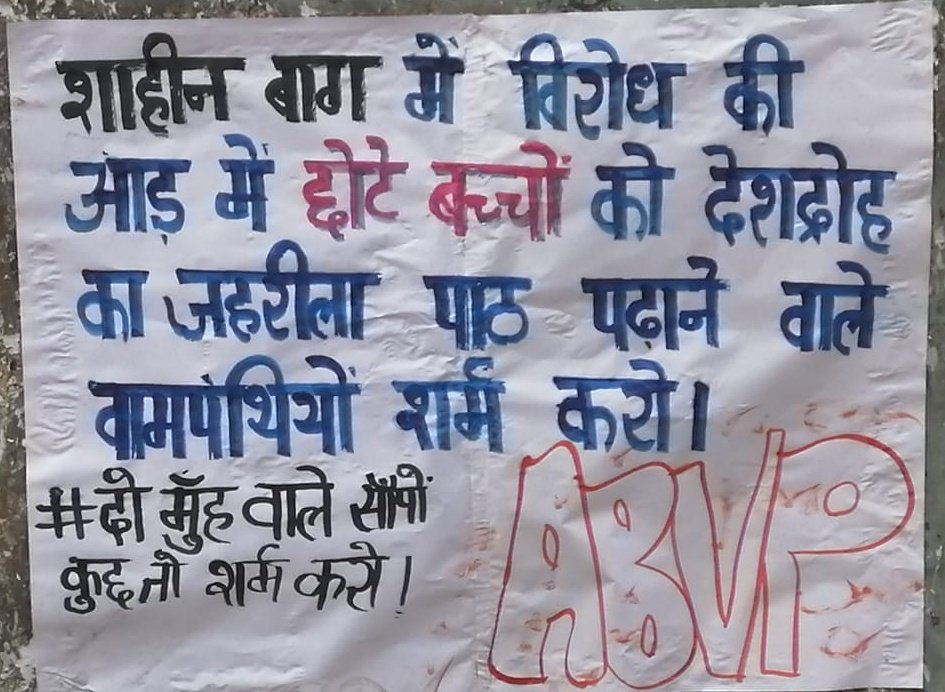 शाहीन बाग में विरोध की
आड़ में छोटे बच्चों को देशद्रोह
का जहरीला पाठ पढ़ाने वाले
वामपंथियों शर्म करो।
#दो मुँह वाले साँपों
कुछ तो शर्म करो।
ABVP